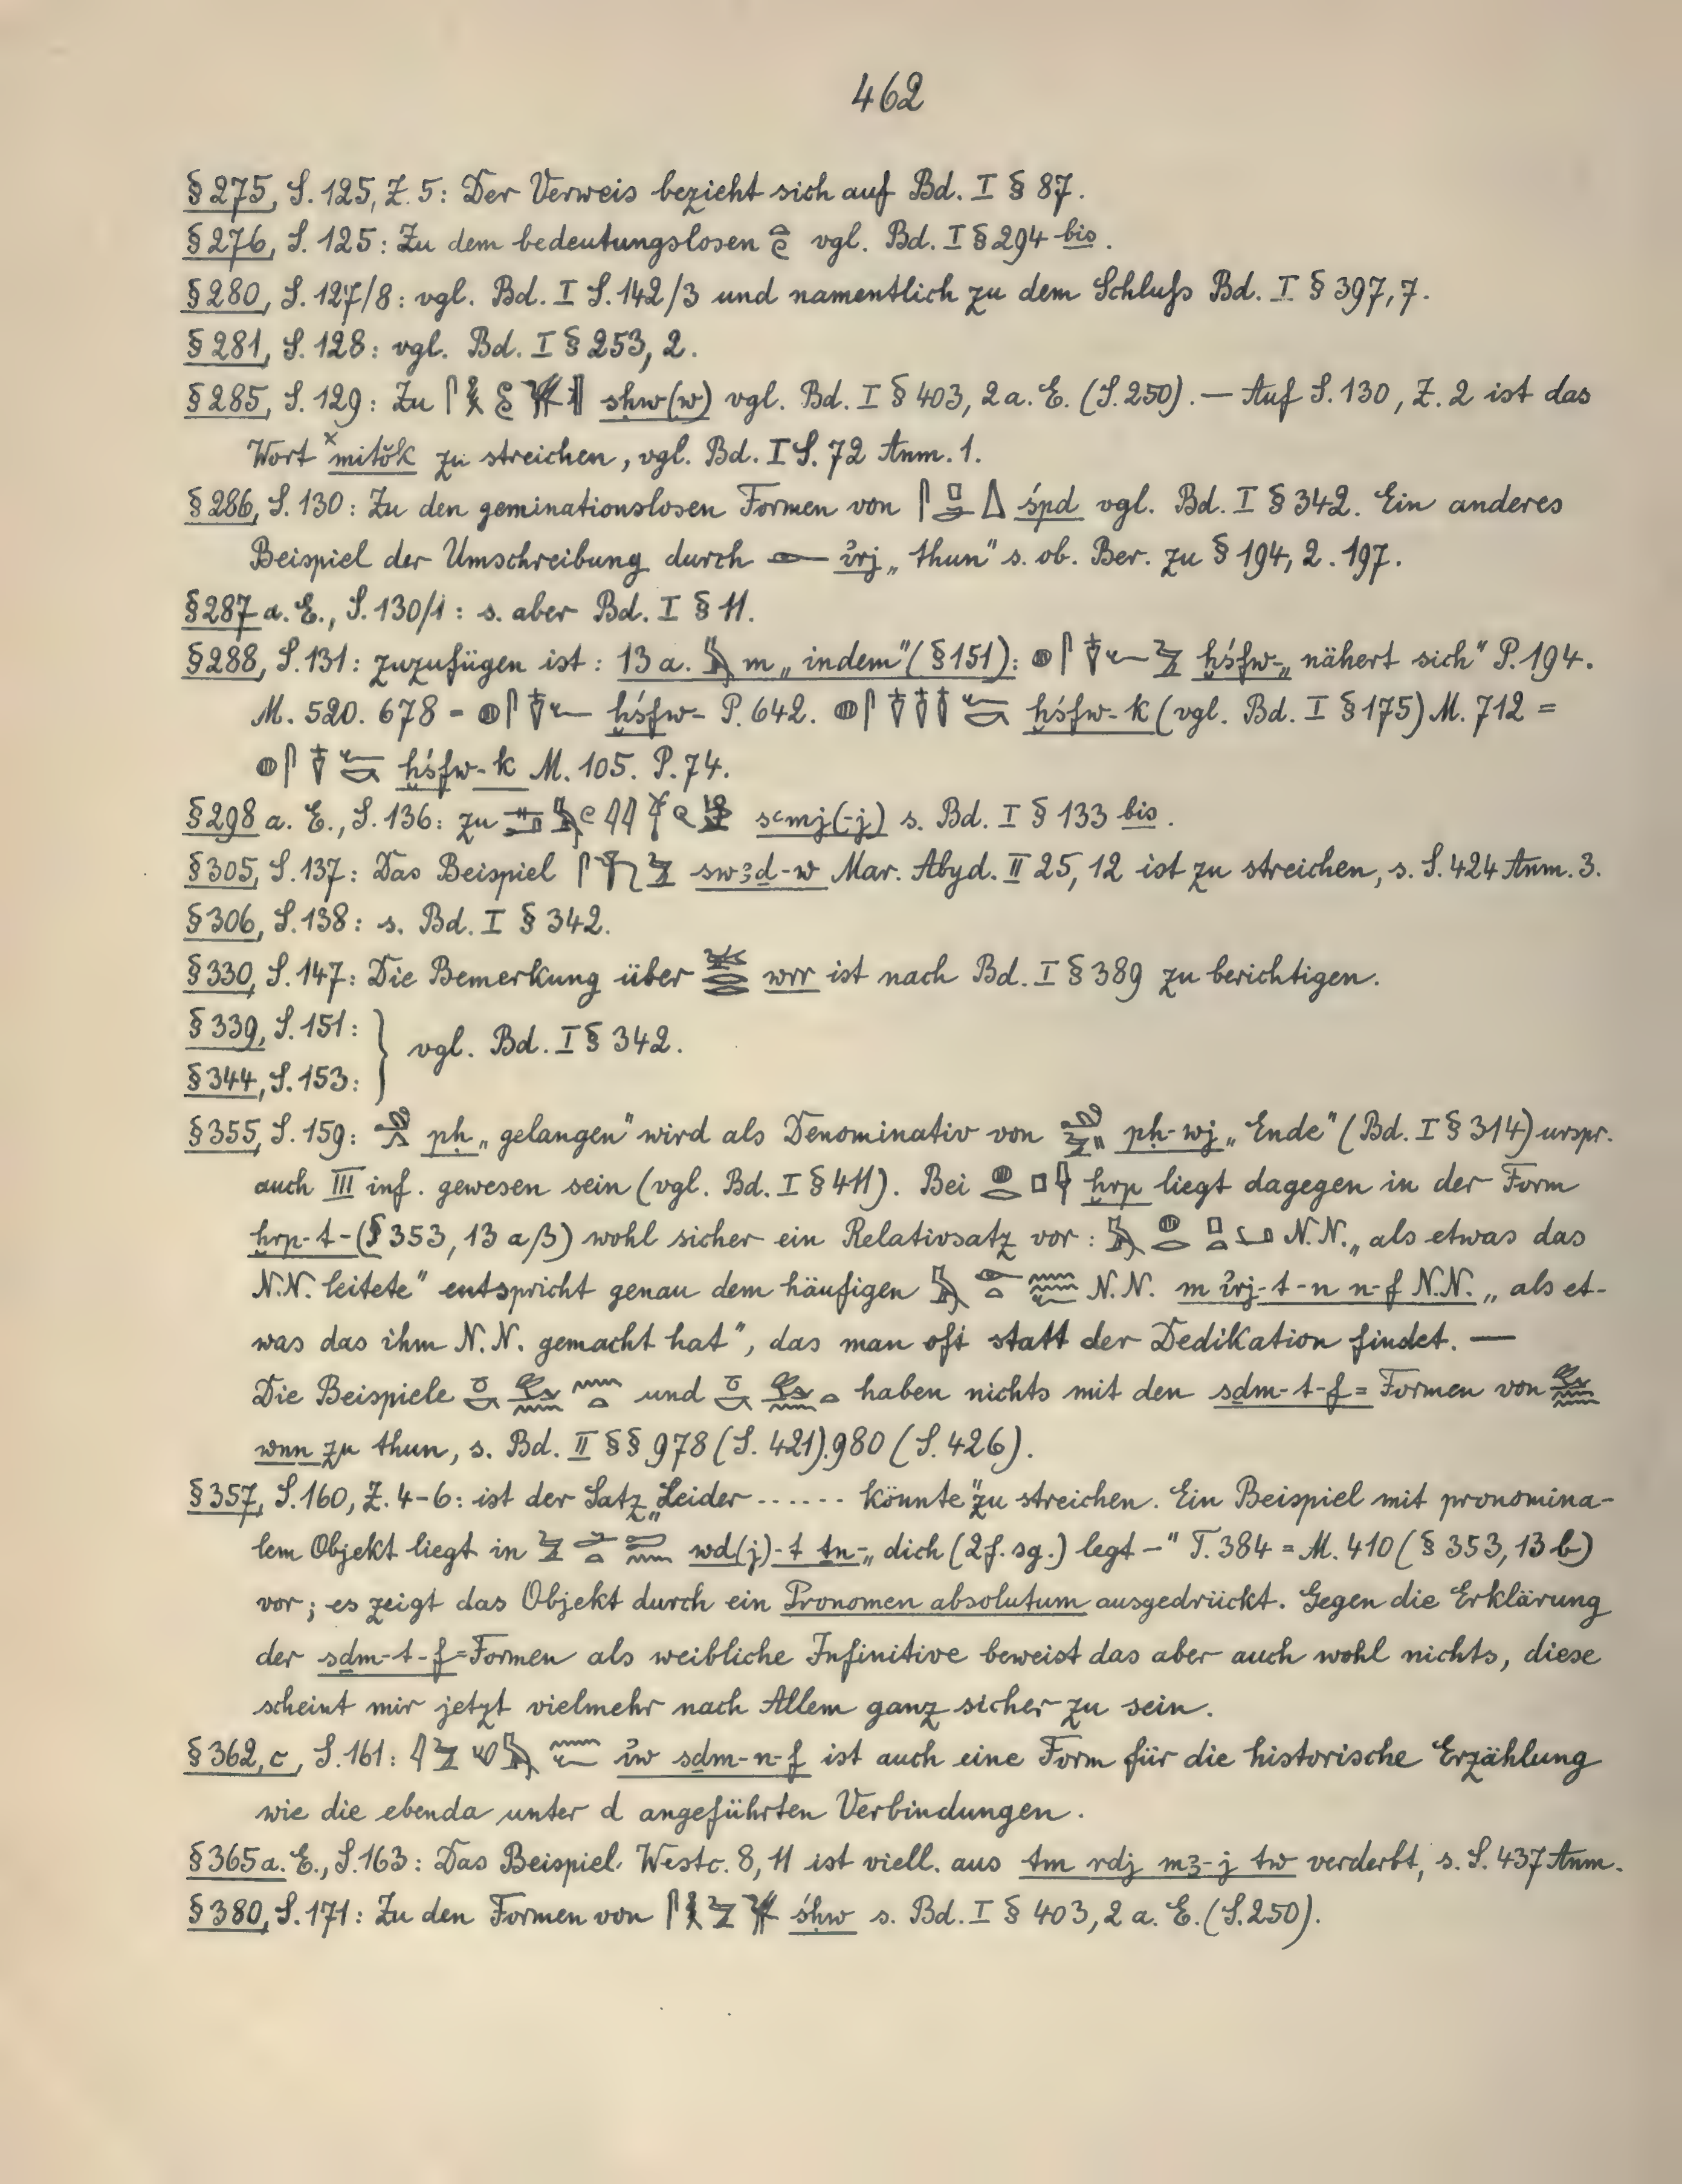 462
§ 275, S. 125, Z. 5: Der Verweis bezieht sich auf Bd. I § 87.
§ 276, S. 125: Zu dem bedeutungslosen vgl. Bd. I § 294 bis.
§ 280, S. 127/8: vgl. Bd. I S. 142/3 und namentlich zu dem Schluſs Bd. I § 397, 7.
§ 281, S. 128: vgl. Bd. I § 253, 2.
§ 285, S. 129: Zu sḥw(w) vgl. Bd. I § 403, 2 a. E. (S. 250). — Auf S. 130, Z. 2 ist das
Wort ˣmitŏk zu streichen, vgl. Bd. I S. 72 Anm. 1.
§ 286, S. 130: Zu den geminationslosen Formen von śpd vgl. Bd. I § 342. Ein anderes
Beispiel der Umschreibung durch ỉrj „thun“ s. ob. Ber. zu § 194, 2. 197.
§ 287 a. E., S. 130/1: s. aber Bd. I § 11.
§ 288, S. 131: zuzufügen ist: 13 a. m „indem“ (§ 151): ḫśfw- „nähert sich“ P. 194.
M. 520. 678 = ḫśfw- P. 642. ḫśfw-k (vgl. Bd. I § 175) M. 712 =
ḫśfw-k M. 105. P. 74.
§ 298 a. E., S. 136: zu sꜥmj(-j) s. Bd. I § 133 bis.
§ 305, S. 137: Das Beispiel swꜣḏ-w Mar. Abyd. II 25, 12 ist zu streichen, s. S. 424 Anm. 3.
§ 306, S. 138: s. Bd. I § 342.
§ 330, S. 147: Die Bemerkung über wrr ist nach Bd. I § 389 zu berichtigen.
§ 339, S. 151: } vgl. Bd. I § 342.
§ 344, S. 153:
§ 355, S. 159: pḥ „gelangen“ wird als Denominativ von pḥ-wj „Ende“ (Bd. I § 314) urspr.
auch III inf. gewesen sein (vgl. Bd. I § 411). Bei ḫrp liegt dagegen in der Form
ḫrp-t- (§ 353, 13 a β) wohl sicher ein Relativsatz vor: N.N. „als etwas das
N.N. leitete“ entspricht genau dem häufigen N.N. m ỉrj-t-n n-f N.N. „als et-
was das ihm N.N. gemacht hat“, das man oft statt der Dedikation findet. —
Die Beispiele und haben nichts mit den sḏm-t-f= Formen von
wnn zu thun, s. Bd. II §§ 978 (S. 421). 980 (S. 426).
§ 357, S. 160, Z. 4–6: ist der Satz „Leider ...... könnte“ zu streichen. Ein Beispiel mit pronomina-
lem Objekt liegt in wd(j)-t ṯn- „dich (2 f. sg.) legt –“ T. 384 = M. 410 (§ 353, 13 b)
vor; es zeigt das Objekt durch ein Pronomen absolutum ausgedrückt. Gegen die Erklärung
der sḏm-t-f=Formen als weibliche Infinitive beweist das aber auch wohl nichts, diese
scheint mir jetzt vielmehr nach Allem ganz sicher zu sein.
§ 362, c, S. 161: ỉw sḏm-n-f ist auch eine Form für die historische Erzählung
wie die ebenda unter d angeführten Verbindungen.
§ 365 a. E., S. 163: Das Beispiel Westc. 8, 11 ist viell. aus tm rdj mꜣ-j tw verderbt, s. S. 437 Anm.
§ 380, S. 171: Zu den Formen von śḥw s. Bd. I § 403, 2 a. E. (S. 250).